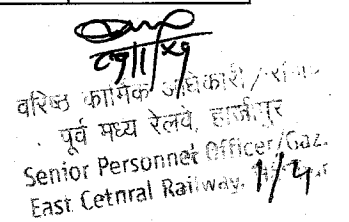 वरिष्ठ कार्मिक अधिकारी/
पूर्व मध्य रेलवे, हाजीपुर
Senior Personnel Officer/Gaz.
East Cetnral Railway,